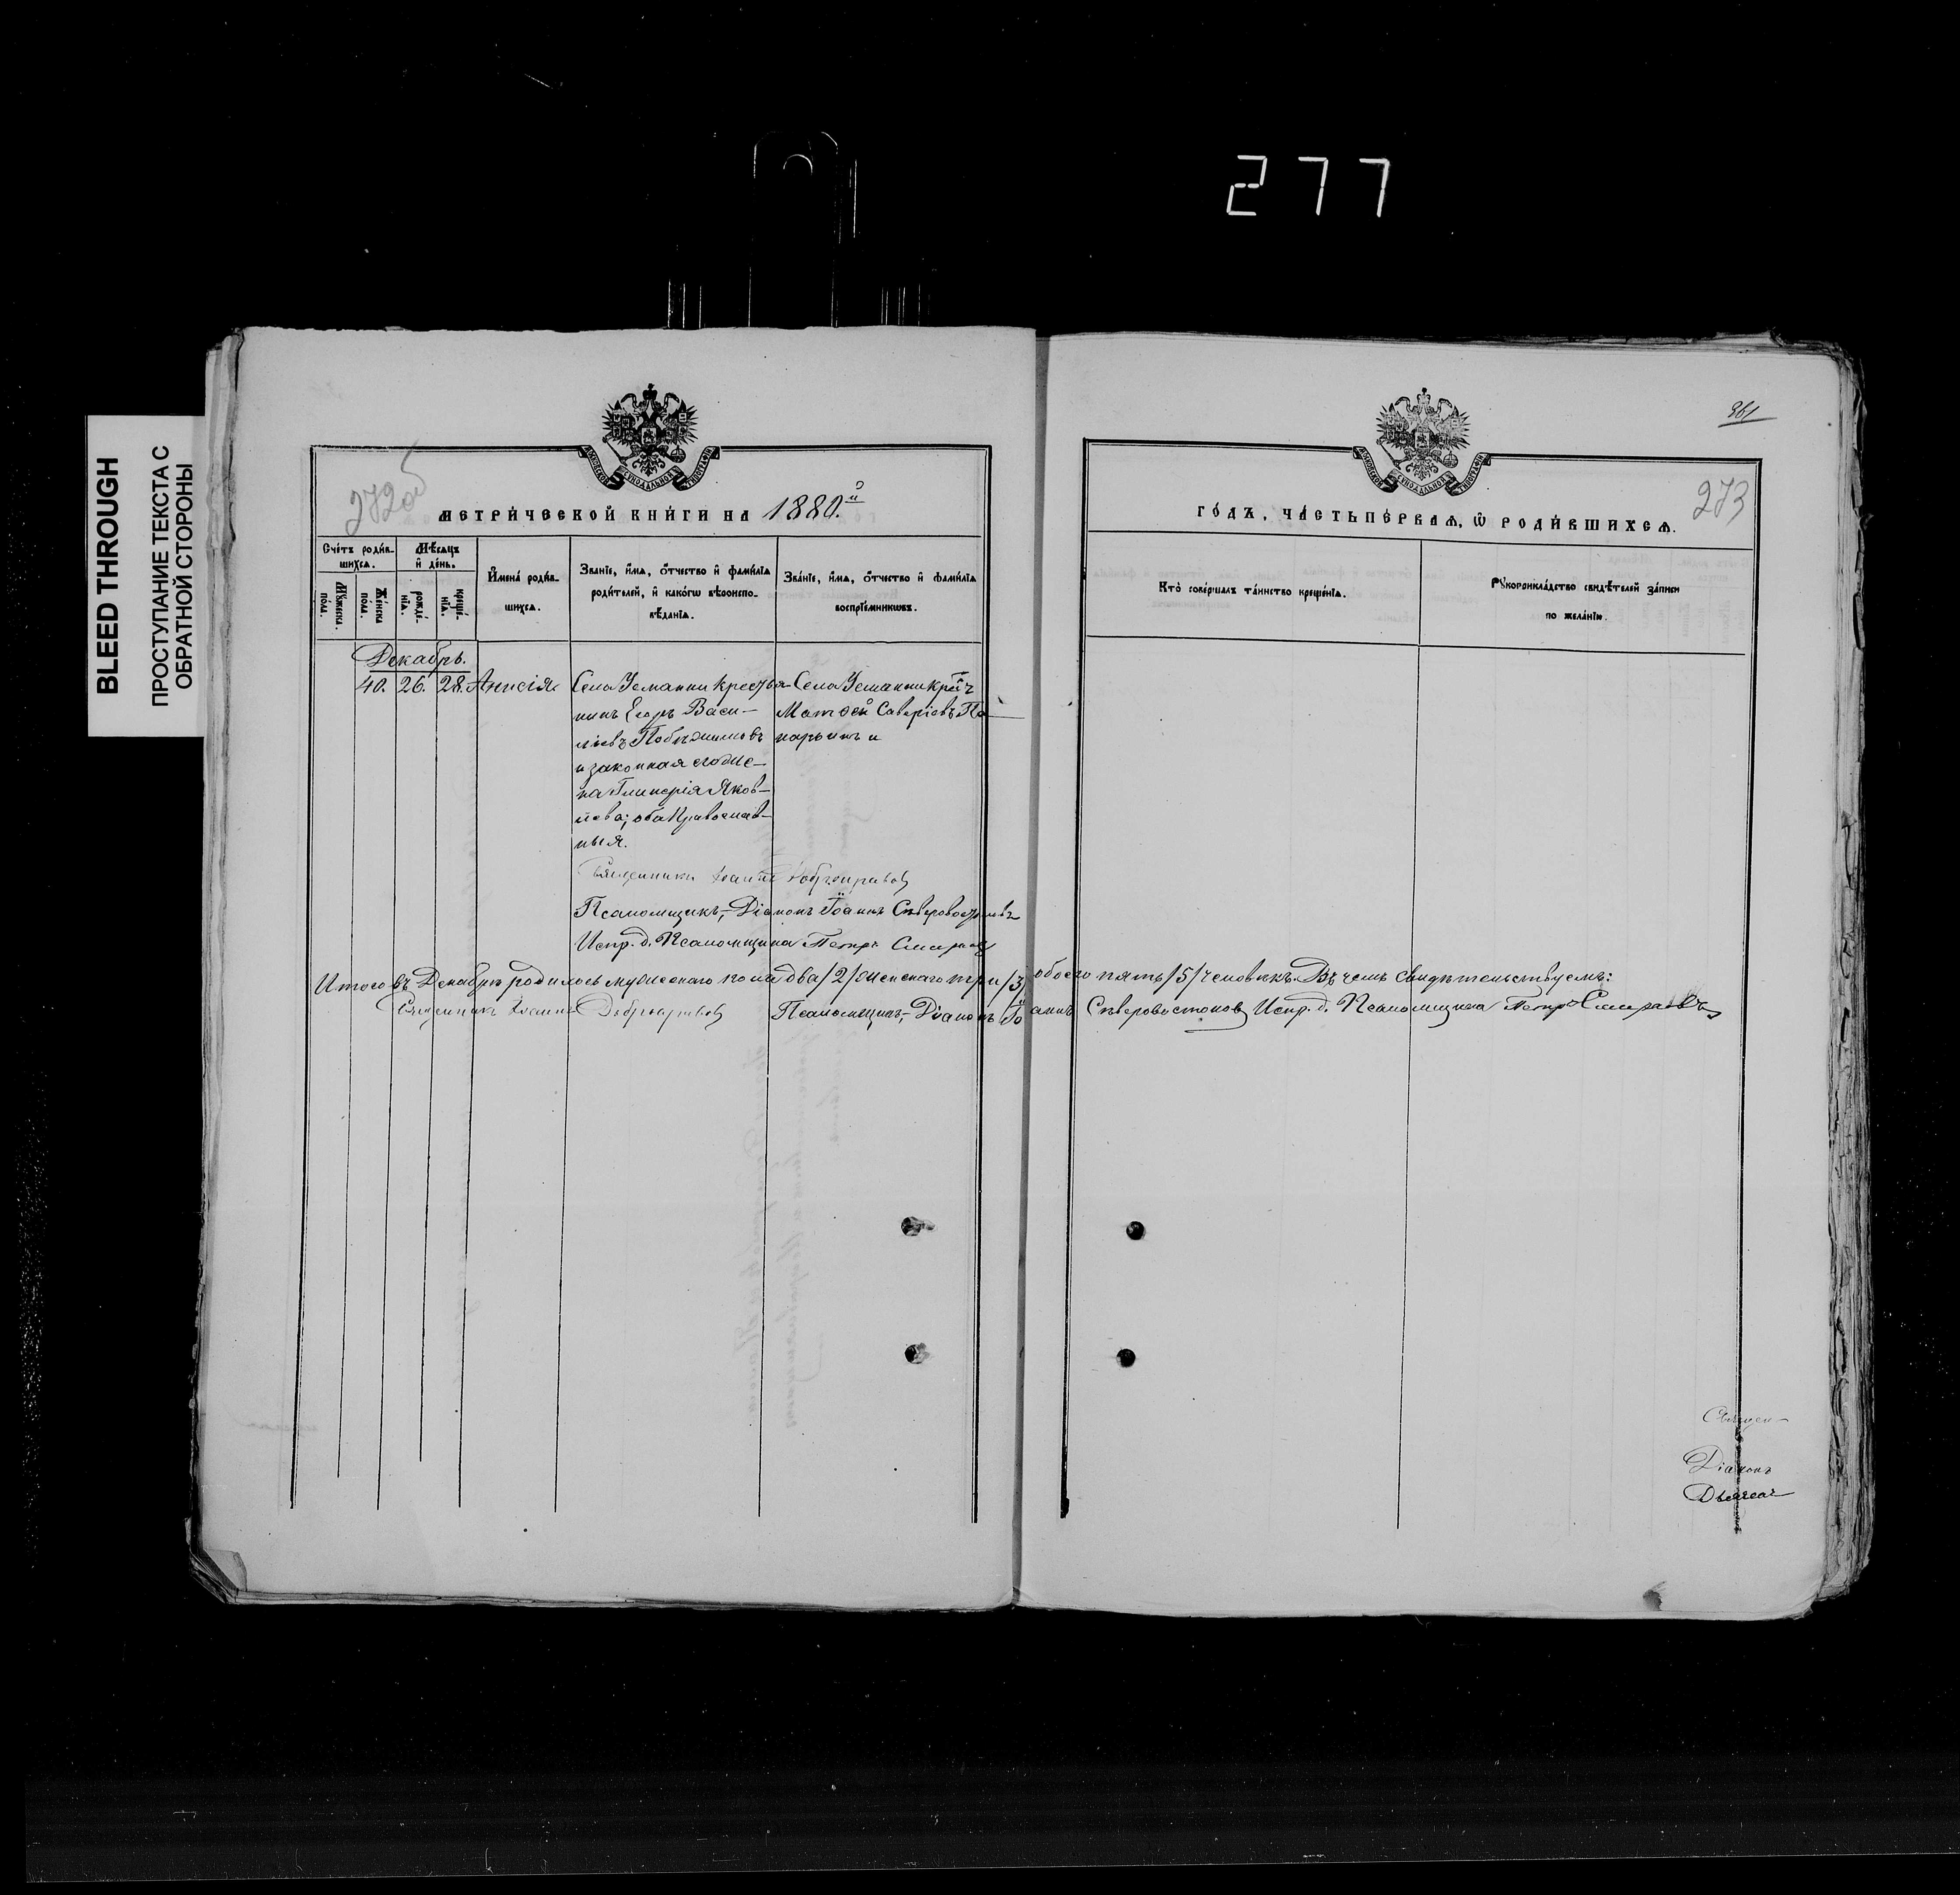 277
BLEED THROUGH
ПРОСТУПАНИЕ ТЕКСТА С
ОБРАТНОЙ СТОРОНЫ
272об
МЕТРИ́ЧЕСКОЙ КНИ́ГИ НА 1880.й
Сче́тъ роди́в-
шихся.
Му́жеска по́ла.
Же́нска по́ла.
Мѣ́сяцъ
и҆ де́нь.
рожде́-
нїя.
креще́-
нїя.
И҆мена̀ роди́в-
шихся.
Зва́нїе, и҆́мя, ѻ҆́тчество и҆ фами́лїя
роди́телей, и҆ како́гѡ вѣроиспо-
вѣ́данїя.
Зва́нїе, и҆́мя, ѻ҆́тчество и҆ фами́лїя
воспрїе́мникѡвъ.
Декабрь.
40. 26. 28. Анисія
Села Усманки крестья-
нинъ Егоръ Васи-
льевъ
и законная его же-
на Гликерія Яков-
лева; оба Православ-
ныя.
Села Усманки
Савеліевъ
и
Священникъ Іоаннъ Добронравовъ
Псаломщикъ,-Діаконъ Іоаннъ Сѣверовостоковъ
Испр. д. Псаломщика Петръ Смирновъ
Итого въ Декабрѣ родилось мужескаго пола два /2/ женскаго три /3/ обоего пять /5/ человѣкъ. Въ чемъ свидѣтельствуемъ:
Священникъ Іоаннъ Добронравовъ Псаломщикъ,-Діаконъ Іоаннъ Сѣверовостоковъ Испр. д. Псаломщика Петръ Смирновъ
961
273
ГО́ДЪ, ЧА́СТЬ ПЕ́РВАЯ, Ѡ҆ РОДИ́ВШИХСЯ.
Кто̀ соверша́лъ та́инство креще́нїя.
Рꙋкоприкла́дство свидѣ́телей за́писи
по жела́нїю.
Священ-
Діаконъ